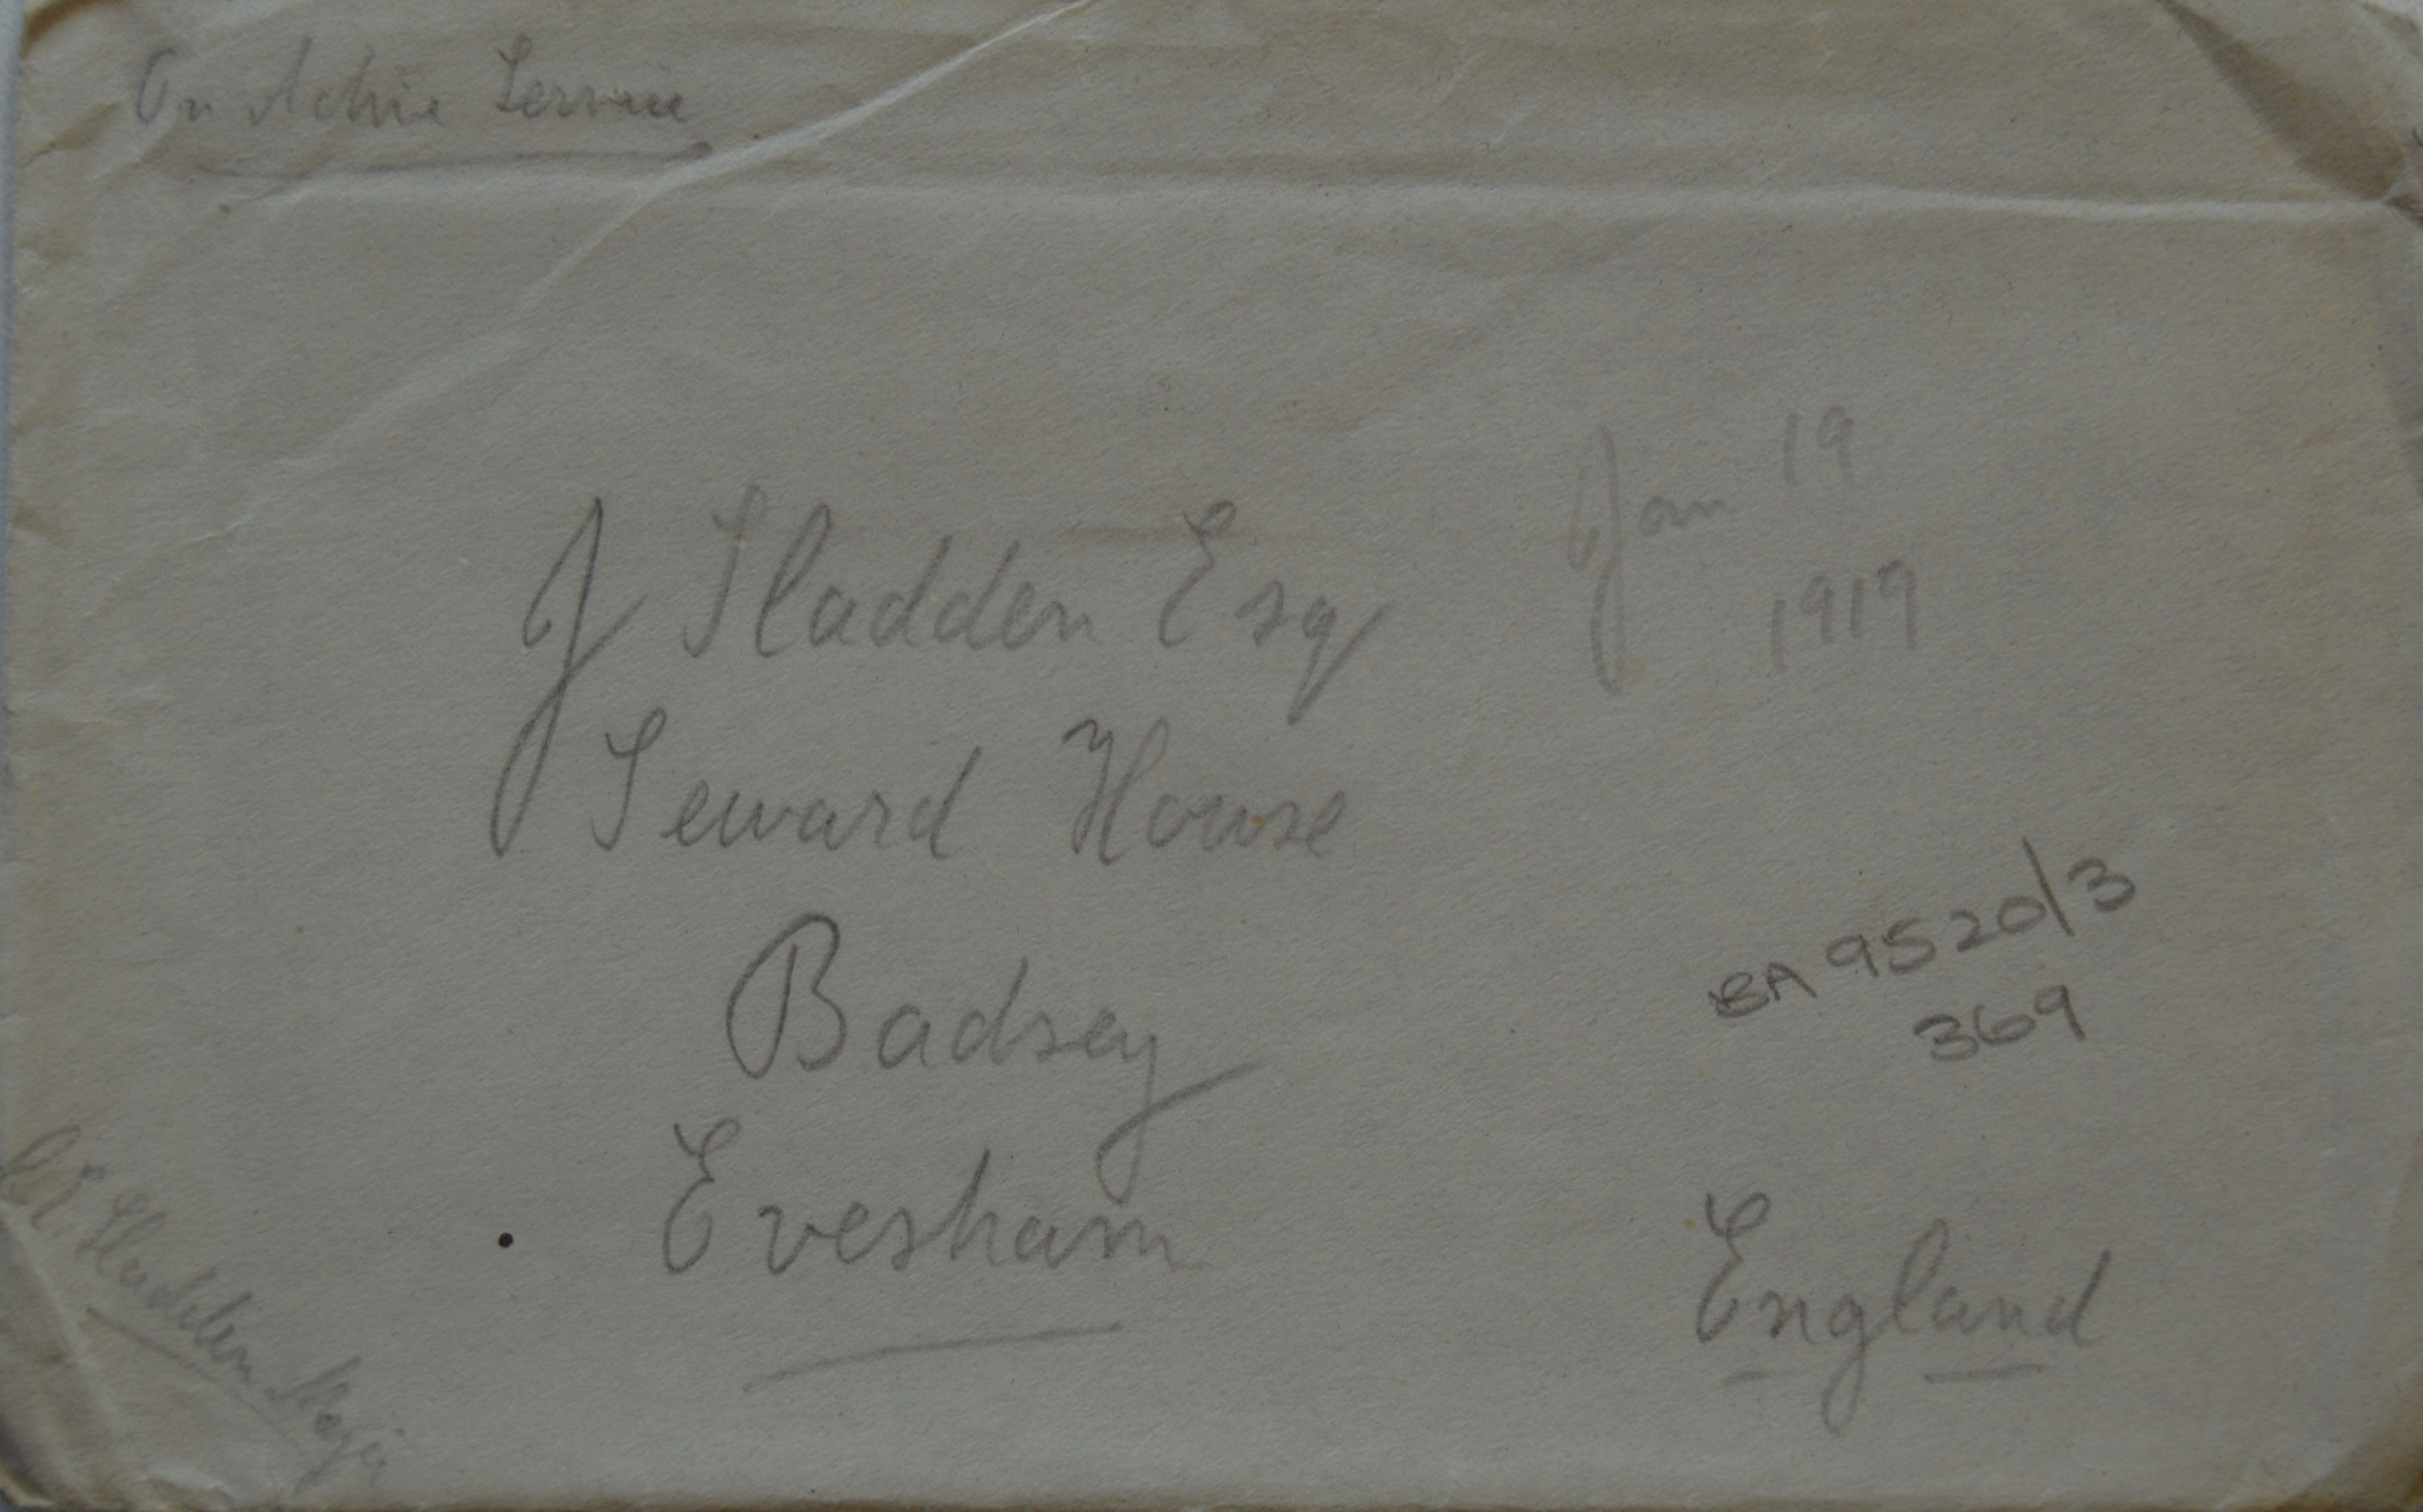 On Active Service
Jan 19
1919
J Sladden Esq
Seward House
Badsey
Evesham
England
BA 9520/3
369
Sladden Major